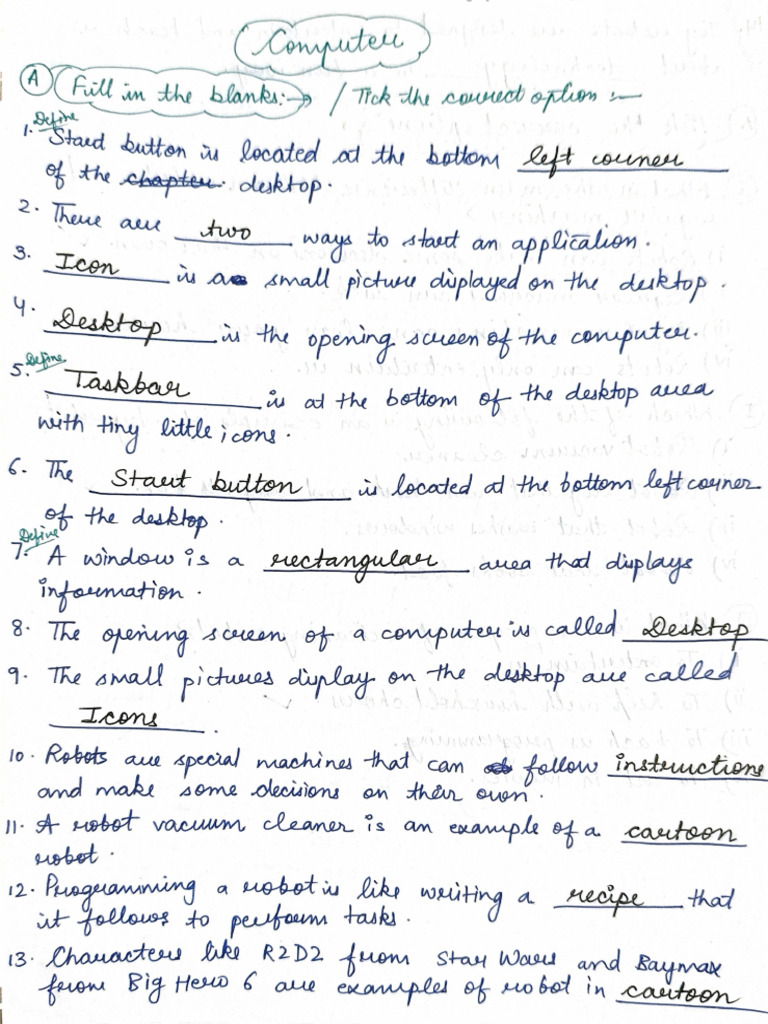 Computer
(A) Fill in the blanks:→ / Tick the correct option :-
Define
1. Start button is located at the bottom left corner
of the chapter desktop.
2. There are two ways to start an application.
3. Icon is a small picture displayed on the desktop.
4. Desktop is the opening screen of the computer.
Define
5. Taskbar is at the bottom of the desktop area
with tiny little icons.
6. The Start button is located at the bottom left corner
of the desktop.
Define
7. A window is a rectangular area that displays
information.
8. The opening screen of a computer is called Desktop
9. The small pictures display on the desktop are called
Icons.
10. Robots are special machines that can follow instructions
and make some decisions on their own.
11. A robot vacuum cleaner is an example of a cartoon
robot.
12. Programming a robot is like writing a recipe that
it follows to perform tasks.
13. Characters like R2D2 from Star Wars and Baymax
from Big Hero 6 are examples of robot in cartoon